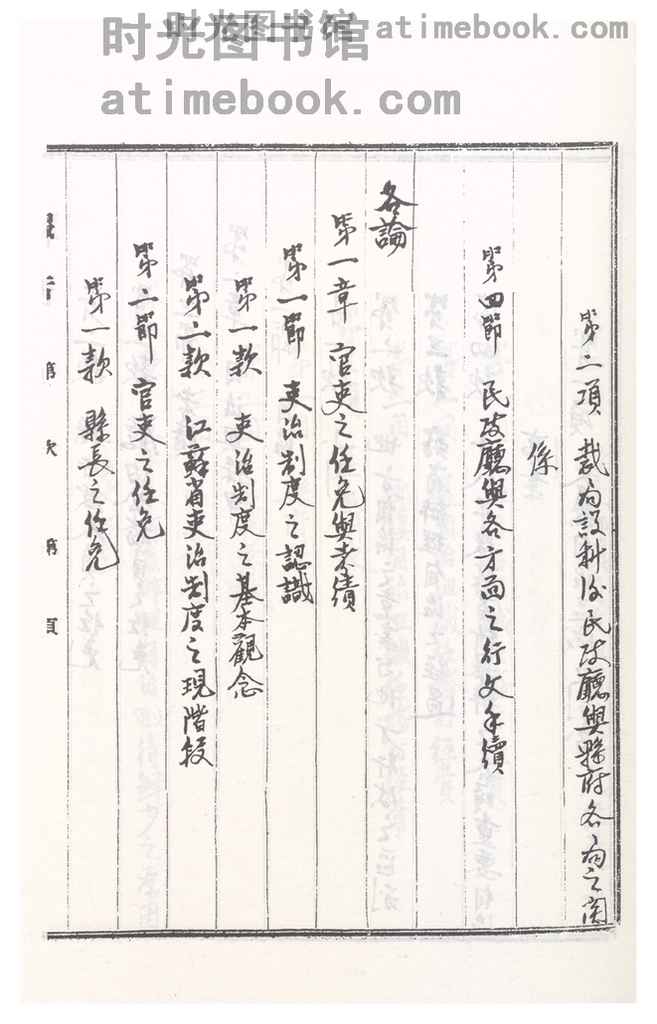 时光图书馆 atimebook.com
时光图书馆
atimebook.com
第二項 裁局設科後民政廳與縣府各局之関
係
第四節 民政廳與各方面之行文手續
各論
第一章 官吏之任免與考績
第一節 吏治制度之認識
第一款 吏治制度之基本觀念
第二款 江蘇省吏治制度之現階段
第二節 官吏之任免
第一款 縣長之任免
第 次 第 頁